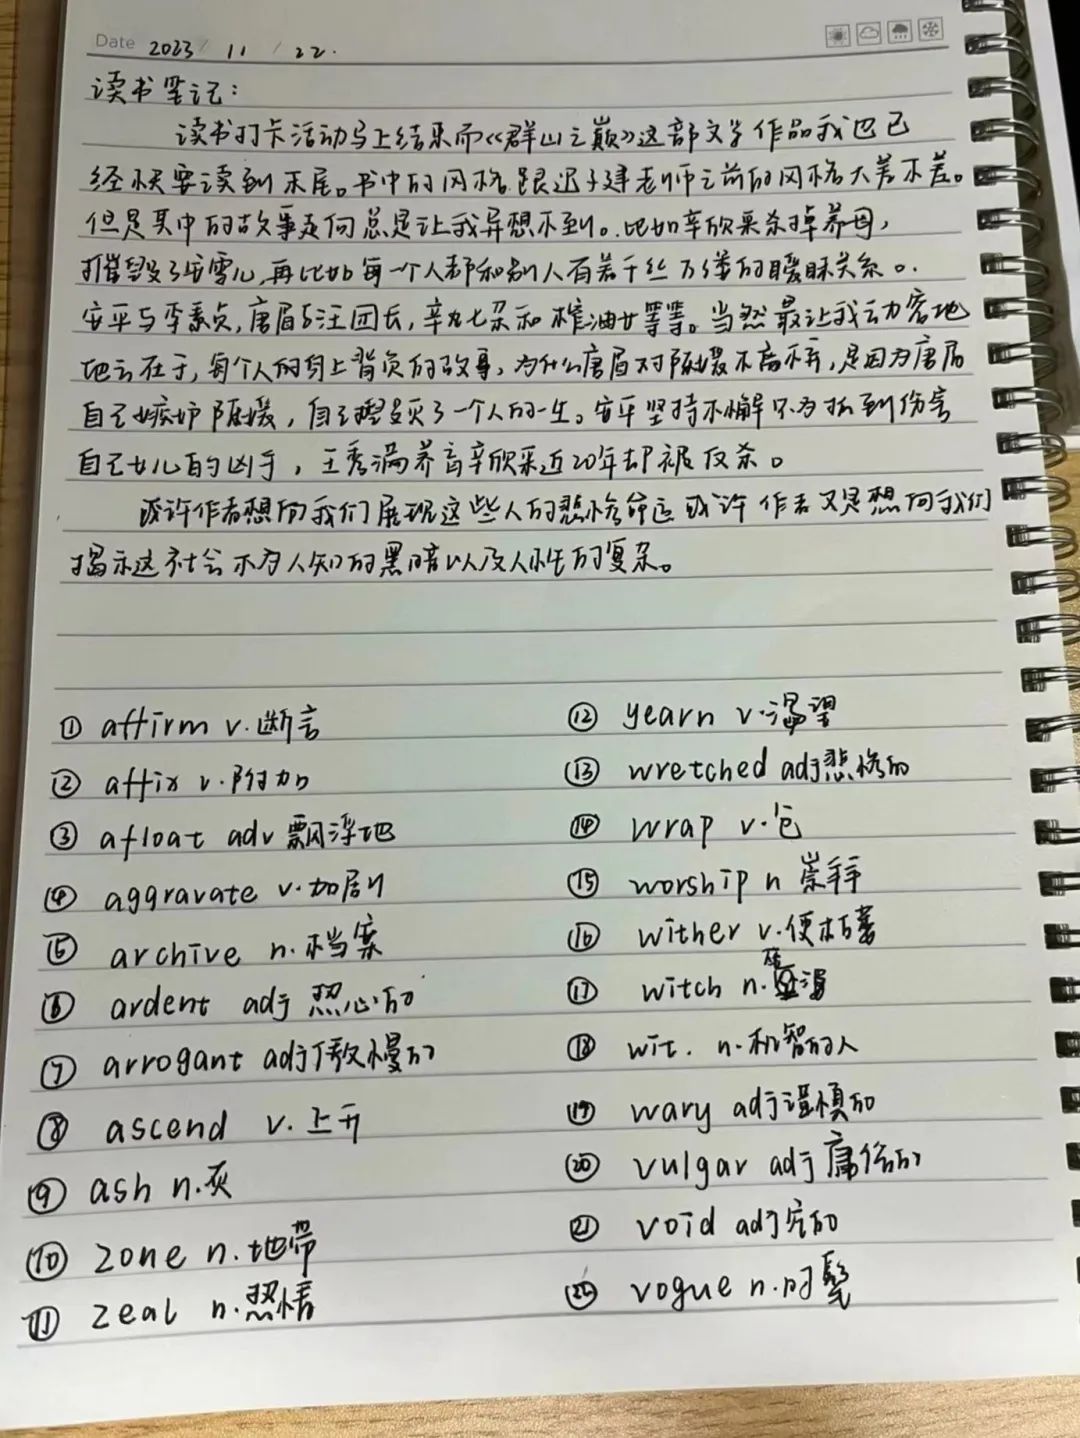 Date 2023 / 11 / 22.
读书笔记：
读书打卡活动马上结束而《群山之巅》这部文学作品我也已
经快要读到末尾。书中的风格跟迟子建老师之前的风格大差不差。
但是其中的故事走向总是让我异想不到。比如辛欣来杀掉养母，
摧毁了安雪儿，再比如每一个人都和别人有着千丝万缕的暧昧关系。
安平与李素贞，唐眉与汪团长，辛七朵和榨油女等等。当然最让我动容地
地方在于，每个人的身上背负的故事，为什么唐眉对陈媛不离不弃，是因为唐眉
自己嫉妒陈媛，自己毁灭了一个人的一生。安平坚持不懈只为抓到伤害
自己女儿的凶手，王秀满养育辛欣来近20年却被反杀。
或许作者想向我们展现这些人的悲惨命运或许作者又是想向我们
揭示这社会不为人知的黑暗以及人性的复杂。
① affirm v.断言
② affix v.附加
③ afloat adv 飘浮地
④ aggravate v.加剧
⑤ archive n.档案
⑥ ardent adj 热心的
⑦ arrogant adj 傲慢的
⑧ ascend v.上升
⑨ ash n.灰
⑩ zone n.地带
⑪ zeal n.热情
⑫ yearn v.渴望
⑬ wretched adj 悲惨的
⑭ wrap v.包
⑮ worship n 崇拜
⑯ wither v.使枯萎
⑰ witch n.
⑱ wit. n.机智的人
⑲ wary adj 谨慎的
⑳ vulgar adj 庸俗的
㉑ void adj 空的
㉒ vogue n.时髦